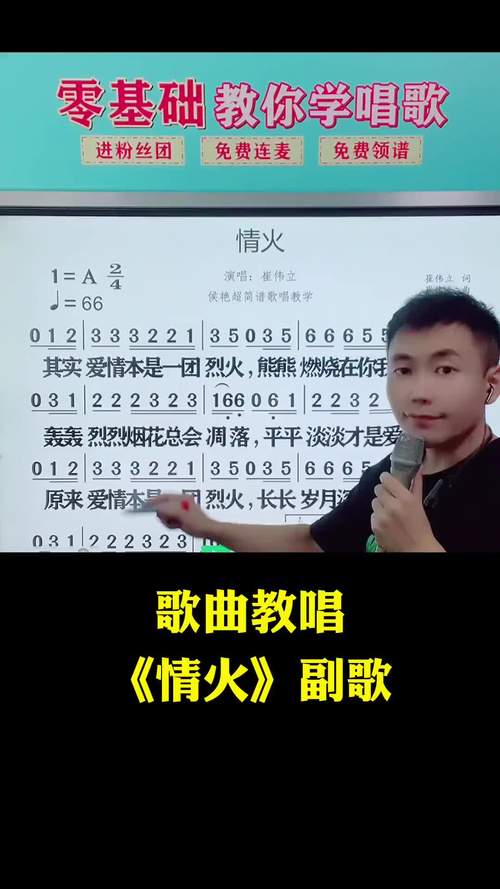 零基础 教你学唱歌
进粉丝团 免费连麦 免费领谱
情火
1=A 2/4
演唱：崔伟立
崔伟立 词
♩=66
侯艳超简谱歌唱教学
0 1 2 | 3 3 3 2 2 1 | 3 5 0 3 5 | 6 6 6 5
其实 爱情本是一团 烈火，熊熊 燃烧在你我
0 3 1 | 2 2 2 3 2 3 | 1 6 6 0 6 1 | 2 2 2
轰轰 烈烈烟花总会 凋 落，平平 淡淡才是爱
0 1 2 | 3 3 3 2 2 1 | 3 5 0 3 5 | 6 6 6 5
原来 爱情本是一团 烈火，长长 岁月
0 3 1 | 2 2 2 3 2 3
歌曲教唱
《情火》副歌